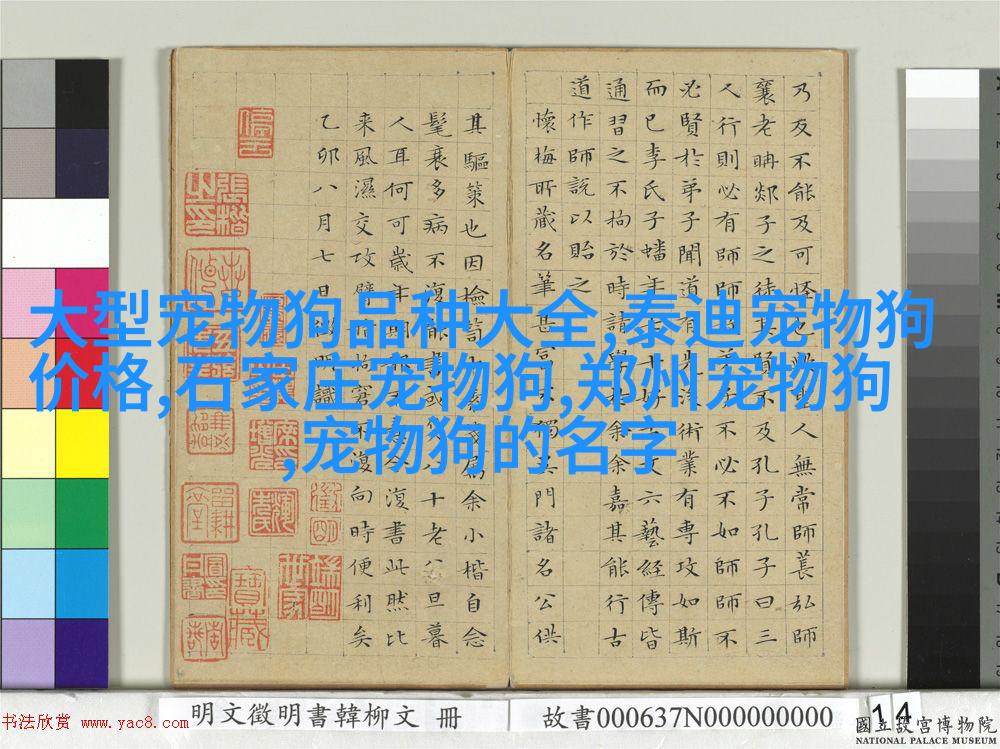 大型宠物狗品种大全,泰迪宠物狗
价格,石家庄宠物狗,郑州宠物狗
,宠物狗的名字
乃反不能及可怪也歟聖人無常師萇弘師
襄老聃郯子之徒其賢不及孔子孔子曰三
人行則必有師師弟子不必不如師師不
必賢於弟子聞道有先後術業有專攻如斯
而已李氏子蟠年十七好古文六藝經傳皆
通習之不拘於時請學於余余嘉其能行古
道作師說以貽之
懷梅所藏名筆甚富不獨其門諸名公供
其驅策也因檢為余小楷自念
髦衰多病不復能書或八十老公旦暮
人耳何可歲年期復書此然比
来風濕交攻臂不復向時便利矣
乙卯八月七日徵明識
明文徵明書韓柳文 冊
故書000637N000000000
14
书法欣赏 www.yac8.com
國立故宮博物院
NATIONAL PALACE MUSEUM